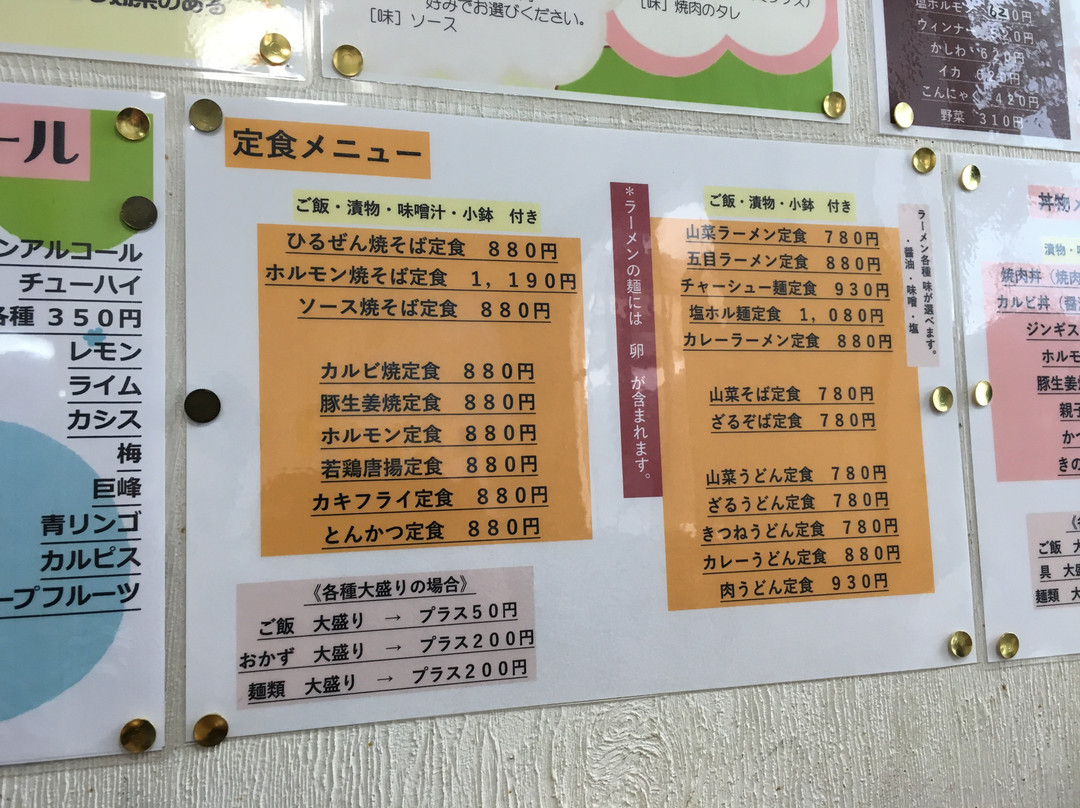 効果のある
好みでお選びください。
［味］ソース
［味］焼肉のタレ
塩ホルモン 620円
ウィンナー 520円
かしわ 620円
イカ 620円
こんにゃく 420円
野菜 310円
ール
ンアルコール
チューハイ
各種 350円
レモン
ライム
カシス
梅
巨峰
青リンゴ
カルピス
ープフルーツ
定食メニュー
ご飯・漬物・味噌汁・小鉢 付き
ひるぜん焼そば定食 880円
ホルモン焼そば定食 1，190円
ソース焼そば定食 880円
カルビ焼定食 880円
豚生姜焼定食 880円
ホルモン定食 880円
若鶏唐揚定食 880円
カキフライ定食 880円
とんかつ定食 880円
《各種大盛りの場合》
ご飯 大盛り → プラス50円
おかず 大盛り → プラス200円
麺類 大盛り → プラス200円
＊ラーメンの麺には 卵 が含まれます。
ご飯・漬物・小鉢 付き
山菜ラーメン定食 780円
五目ラーメン定食 880円
チャーシュー麺定食 930円
塩ホル麺定食 1，080円
カレーラーメン定食 880円
山菜そば定食 780円
ざるそば定食 780円
山菜うどん定食 780円
ざるうどん定食 780円
きつねうどん定食 780円
カレーうどん定食 880円
肉うどん定食 930円
ラーメン各種 味が選べます。
・醤油・味噌・塩
丼物メ
漬物・
焼肉丼（焼肉
カルビ丼（醤
ジンギス
ホルモ
豚生姜
親子
かつ
きの
ご飯 大
具 大盛
麺類 大